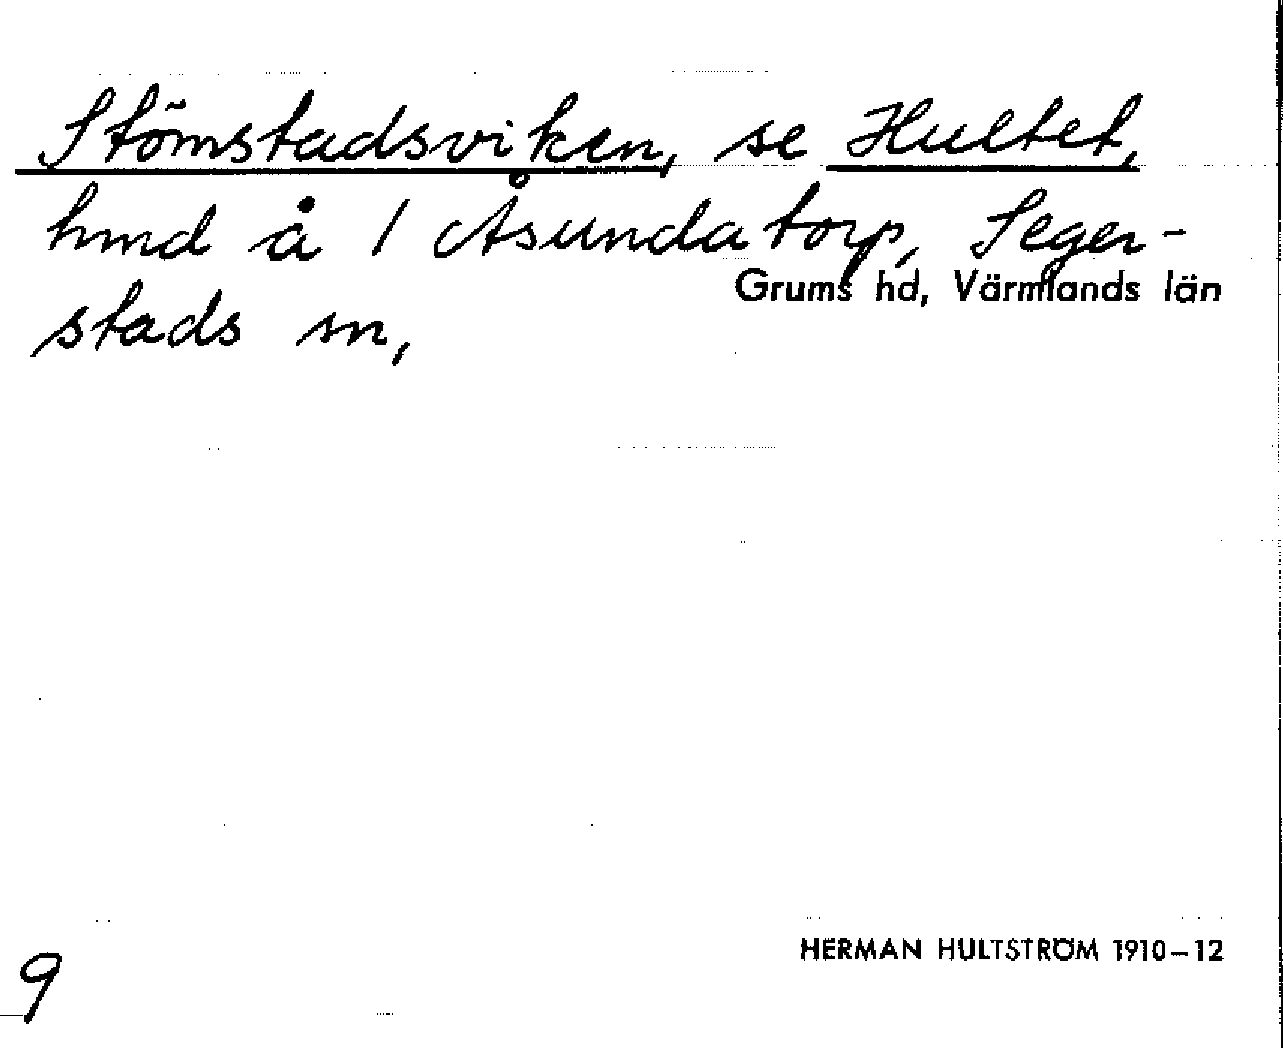 Stömstadsviken, se Hultet,
hmd å 1 Åsundatorp, Seger-
Grums hd, Värmlands län
stads sn,
HERMAN HULTSTRÖM 1910–12
9